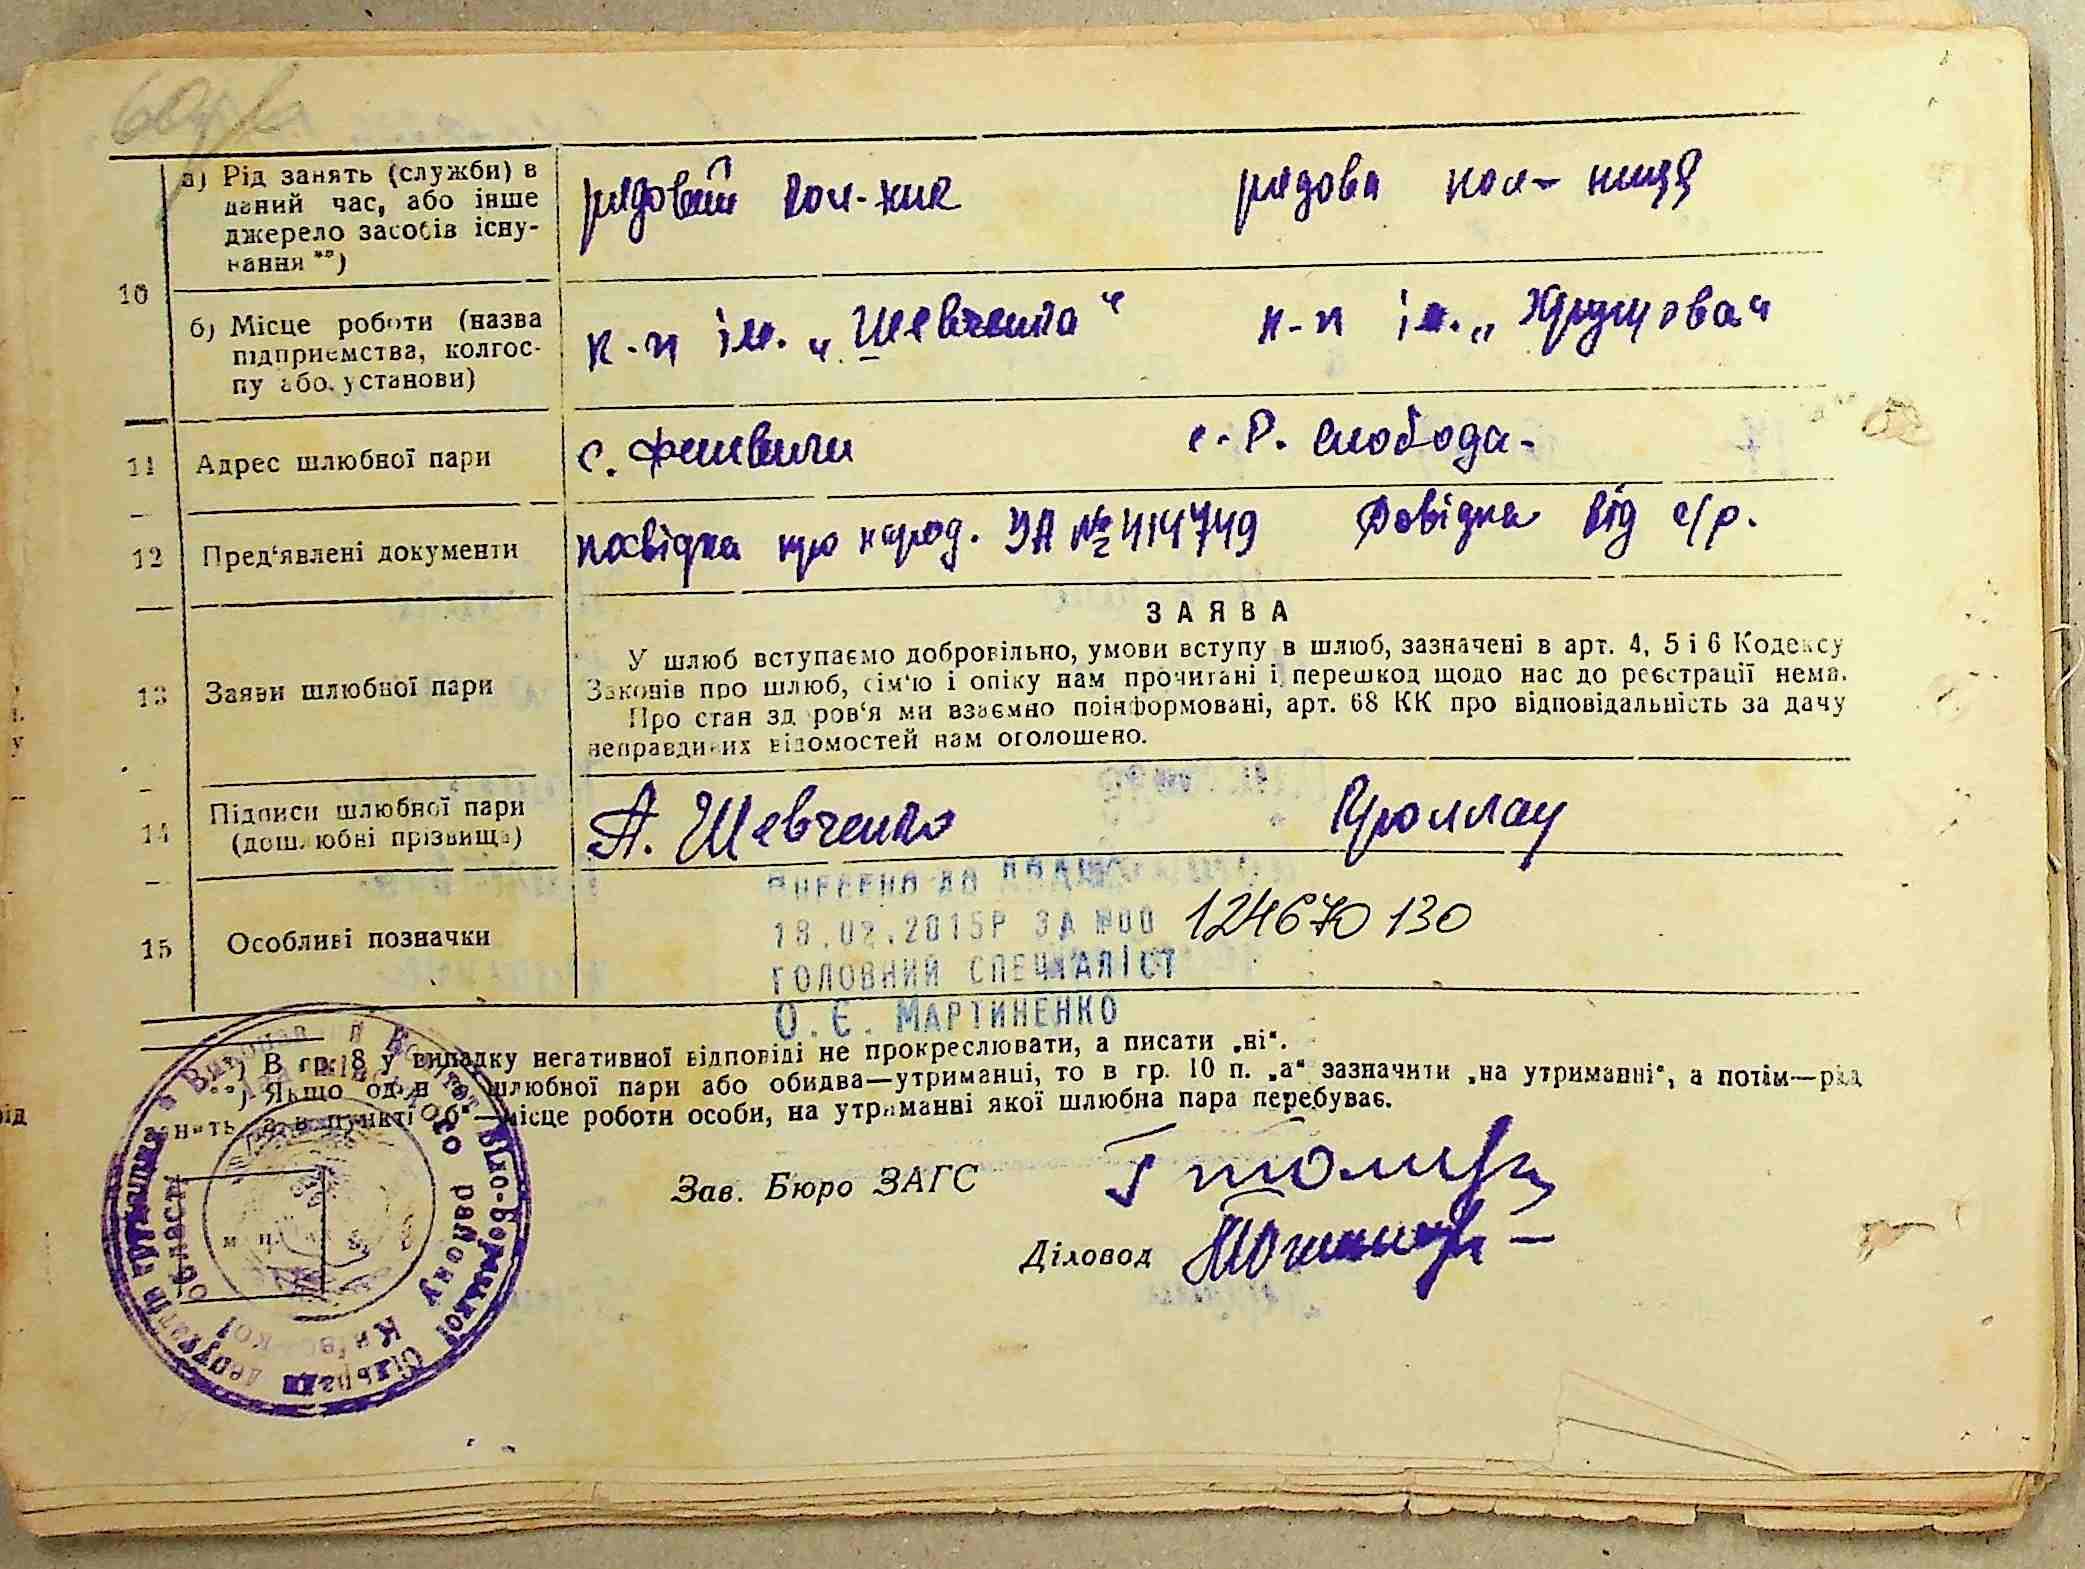 10
а) Рід занять (служби) в
даний час, або інше
джерело засобів існу-
вання **)
рядовий кол-ник
рядова кол-ниця
б) Місце роботи (назва
підприємства, колгос-
пу або установи)
к-п ім. „Шевченка“
к-п ім. „Хрущова“
11 Адрес шлюбної пари
с.
с. Р. Слобода-
12 Пред‘явлені документи
посвідка про народ. УА № 414749 Довідка від с/р.
13 Заяви шлюбної пари
ЗАЯВА
У шлюб вступаємо добровільно, умови вступу в шлюб, зазначені в арт. 4, 5 і 6 Кодексу
Законів про шлюб, сім‘ю і опіку нам прочитані і перешкод щодо нас до реєстрації нема.
Про стан здоров‘я ми взаємно поінформовані, арт. 68 КК про відповідальність за дачу
неправдивих відомостей нам оголошено.
14 Підписи шлюбної пари
(дошлюбні прізвища)
А. Шевченко
15 Особливі позначки
Внесено до
18.02.2015р за №00 124670130
головний спеціаліст
О.Є. Мартиненко
*) В гр. 8 у випадку негативної відповіді не прокреслювати, а писати „ні“.
**) Якщо один з шлюбної пари або обидва—утриманці, то в гр. 10 п. „а“ зазначити „на утриманні“, а потім—рід
занять, а в пункті „б“—місце роботи особи, на утриманні якої шлюбна пара перебуває.
Зав. Бюро ЗАГС
Діловод
м. п.
району Київської області